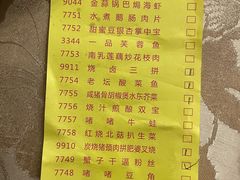 9044 金蒜锅巴焗海虾
7751 水煮鹅肠肉片
7752 甜蜜豆银杏掌中宝
3344 一品芙蓉鱼
7753 南乳莲藕炒花枝肉
9911 烧卤三拼
7754 老坛酸菜鱼
7755 咸猪骨胡椒煲水东芥菜
7756 烧汁煎酿双宝
7757 啫啫牛蛙
7758 红烧北菇扒生菜
9940 炭烧猪颈肉拼肥婆叉烧
7749 蟹子干逼粉丝
7748 啫啫豆角